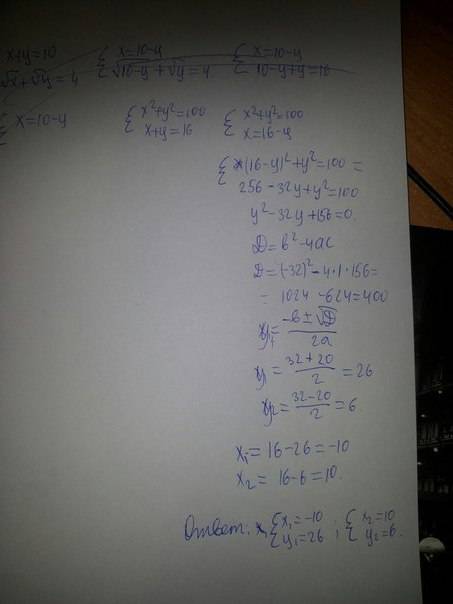 { x+y=10 { x=10-y { x=10-y
√x+√y=4 √10-y + √y=4 10-y+y=16
{ x=10-y { x²+y²=100 { x²+y²=100
x+y=16 x=16-y
{ (16-y)²+y²=100 =
256-32y+y²=100
y²-32y+156=0.
D=b²-4ac
D=(-32)²-4·1·156=
= 1024-624=400
y₁=-b±√D/2a
y₁=32+20/2=26
y₂=32-20/2=6
x₁=16-26=-10
x₂=16-6=10.
Ответ: { x₁=-10 ; { x₂=10
y₁=26 y₂=6.